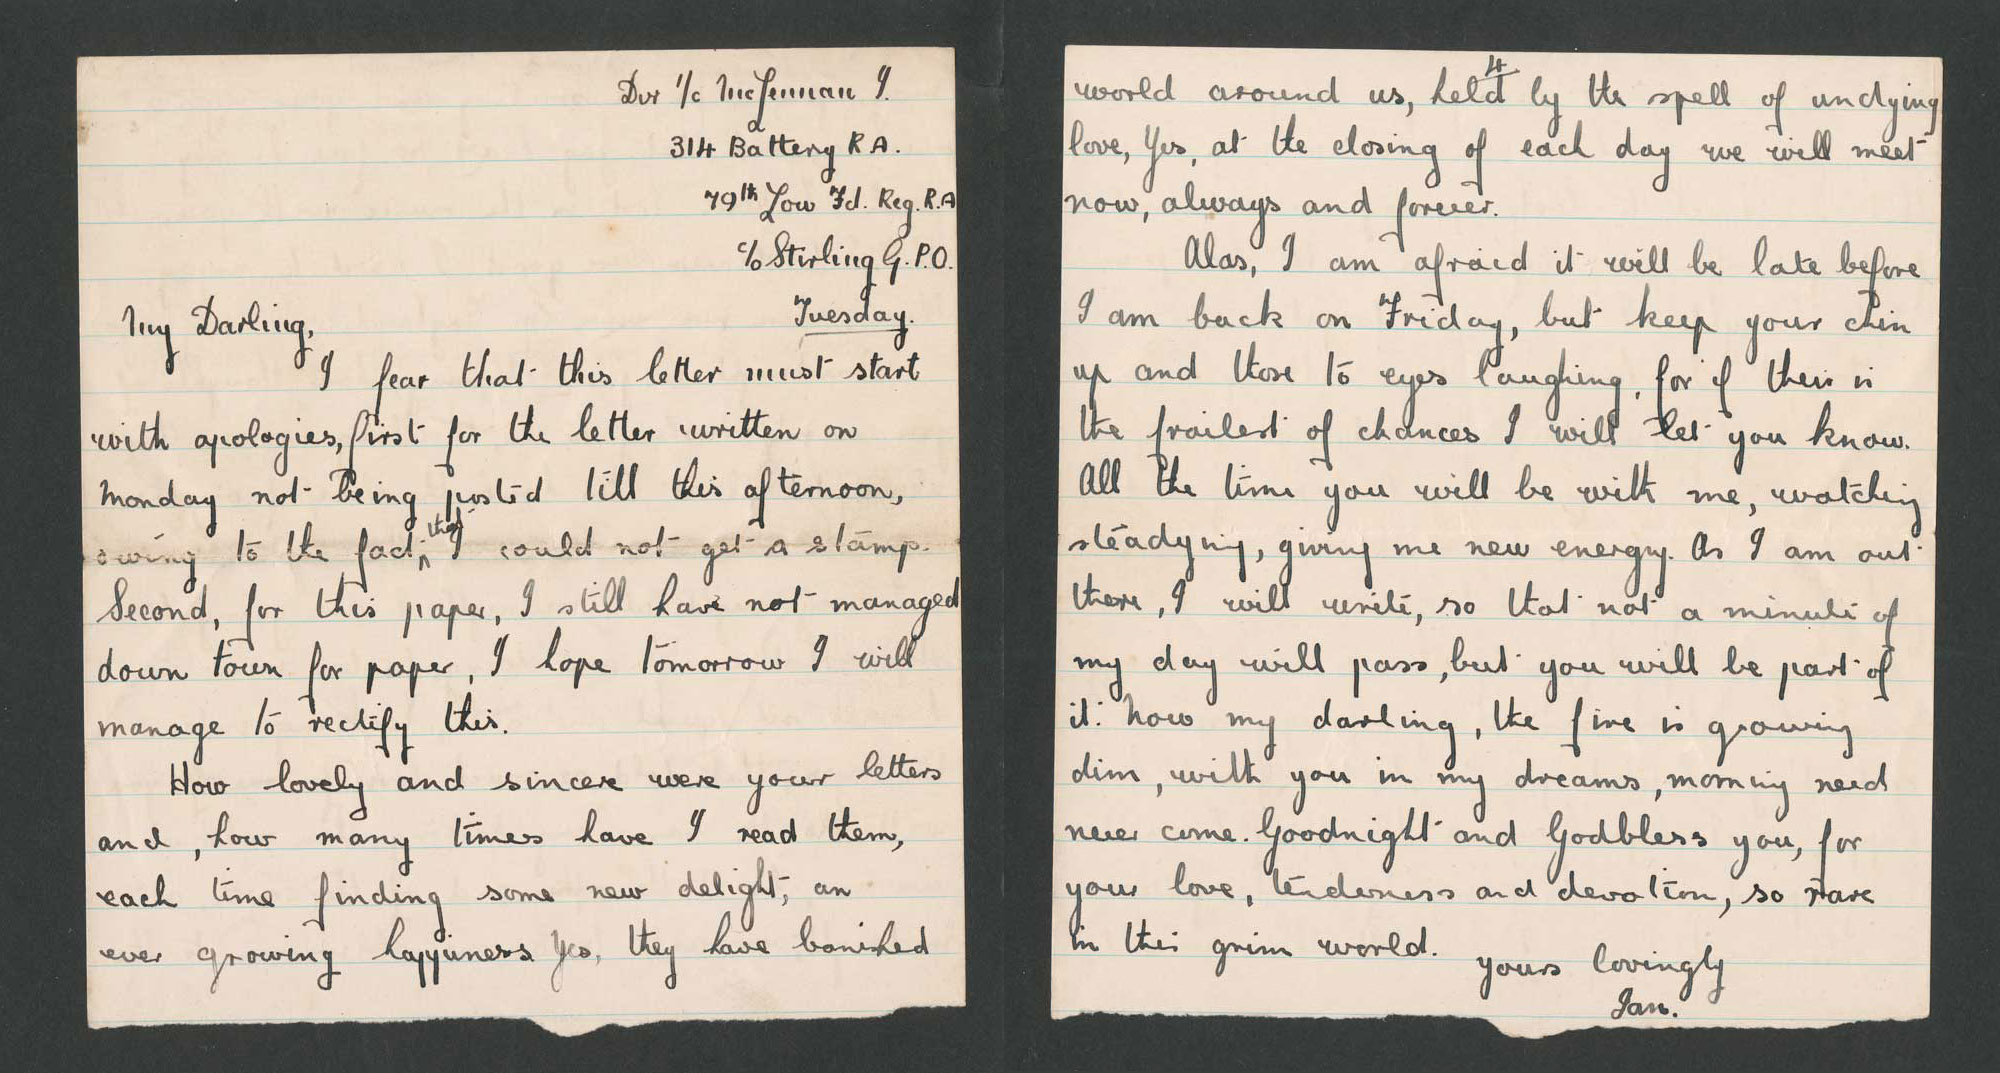 Dvr i/c McLennan I.
314 Battery R A.
79th Low Fd. Reg. R.A
c/o Stirling G.P.O.
Tuesday.
My Darling,
I fear that this letter must start
with apologies, first for the letter written on
Monday not being posted till this afternoon,
owing to the fact, that I could not get a stamp.
Second, for this paper, I still have not managed
down town for paper, I hope tomorrow I will
manage to rectify this.
How lovely and sincere were your letters
and, how many times have I read them,
each time finding some new delight, an
ever growing happiness Yes, they have banished
4
world around us, held by the spell of undying
love, Yes, at the closing of each day we will meet
now, always and forever.
Alas, I am afraid it will be late before
I am back on Friday, but keep your chin
up and those to eyes laughing, for if their is
the frailest of chances I will let you know.
All the time you will be with me, watching
steadying, giving me new energy. As I am out
there, I will write, so that not a minute of
my day will pass, but you will be part of
it. Now my darling, the fire is growing
dim, with you in my dreams, morning need
never come. Goodnight and Godbless you, for
your love, tenderness and devotion, so rare
in this grim world.
yours lovingly
Ian.